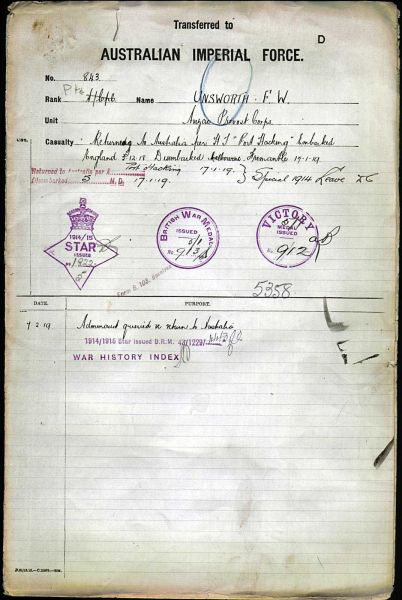 Transferred to
D
AUSTRALIAN IMPERIAL FORCE.
No. 843
Rank Name UNSWORTH. F. W.
Unit Anzac Provost Corps
Casualty Returned to Australia per H T "Port Hacking" Embarked
England 5.12.18 Disembarked Fremantle 17.1.19.
Returned to Australia per Port Hacking 17.1.19. Special 1914 Leave
Disembarked 17.1.19.
1914/15
STAR
ISSUED
No. 1822
BRITISH WAR MEDAL
ISSUED
No. 913
VICTORY
MEDAL
ISSUED
No. 912
Form B. 103. Received
5358
DATE. PURPORT.
7 2 19. Admiralt queried return to Australia
1914/1915 Star issued D.R.M. 43/1229/
WAR HISTORY INDEX